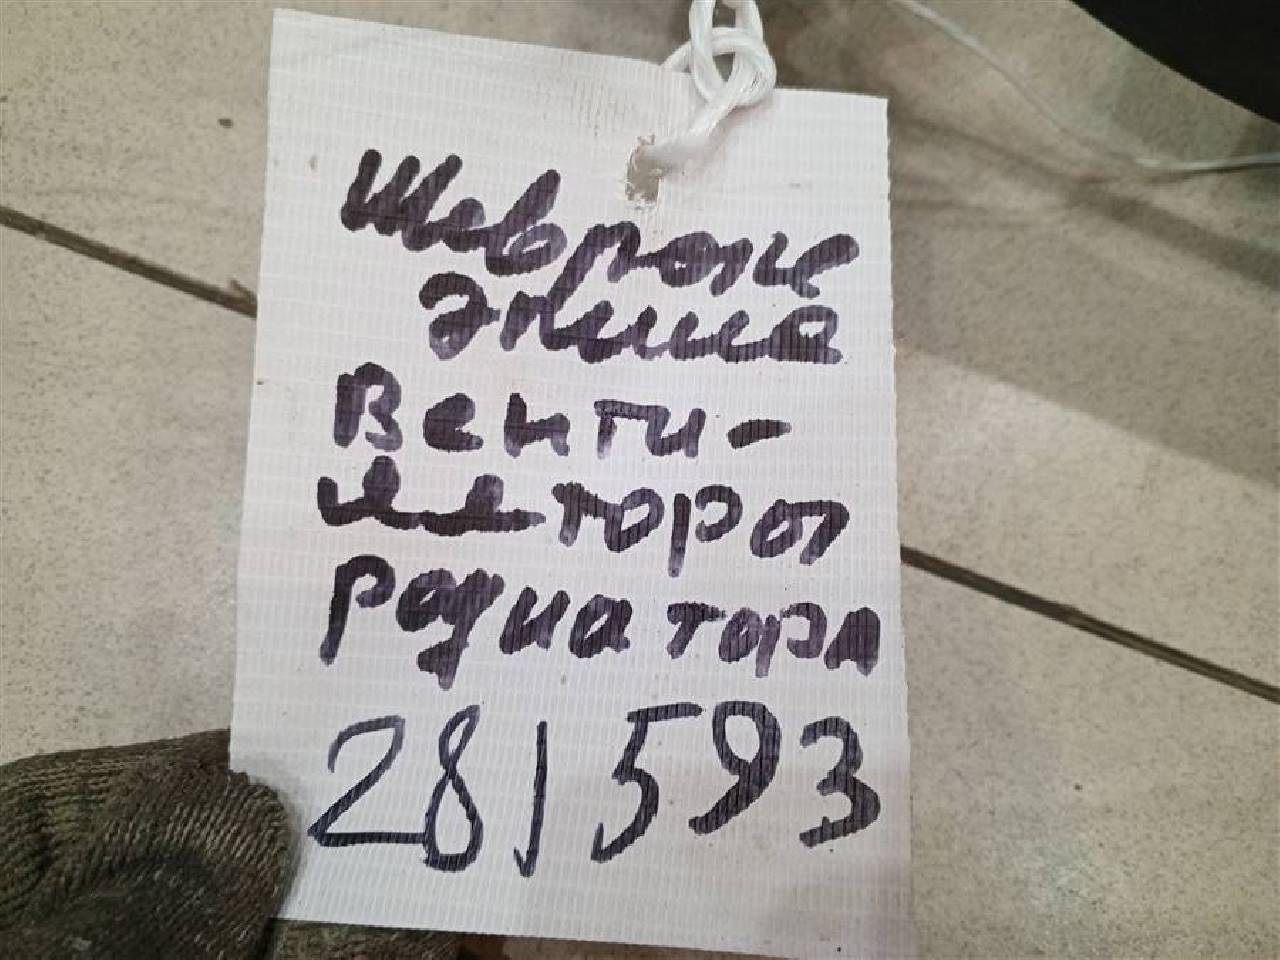 Шевроле
Эпика
Венти-
ляторы
радиатора
281593